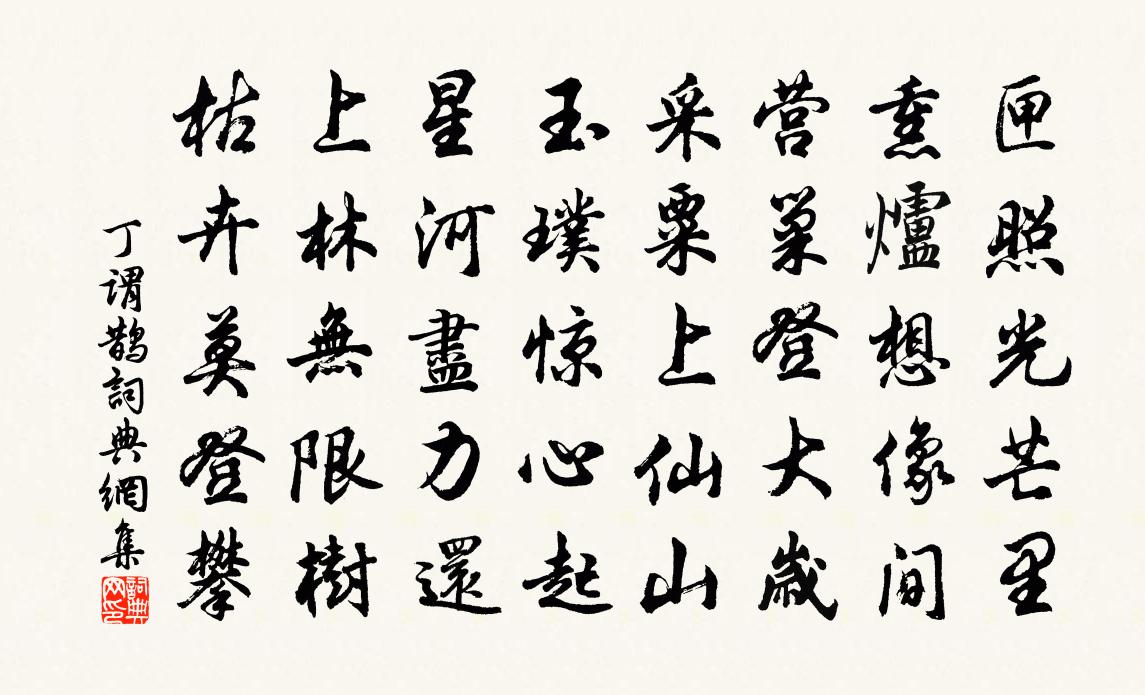 匣照光芒里
熏爐想像间
营巢登大歲
采粟上仙山
玉璞惊心起
星河盡力還
上林無限樹
枯卉莫登攀
丁谓鹊詞典網集
詞典网印